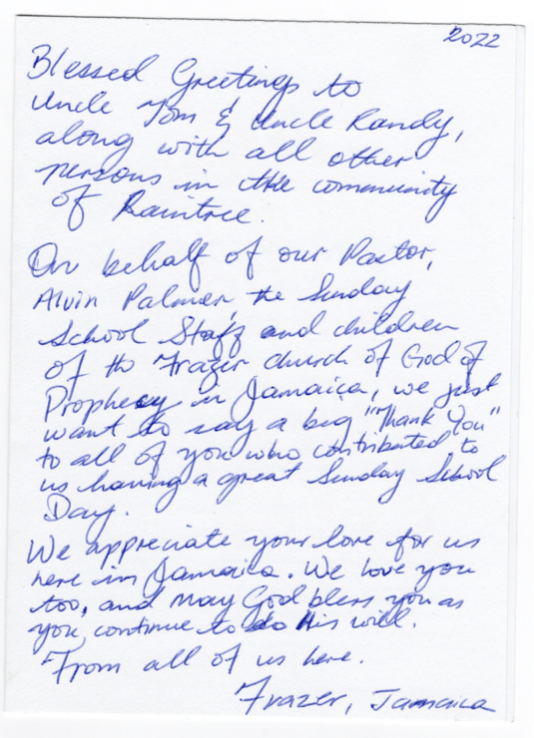 2022
Blessed Greetings to
Uncle Tom & Uncle Randy,
along with all other
persons in the community
of Raintree.
On behalf of our Pastor,
Alvin Palmer, the Sunday
School Staff and children
of the Frazer church of God of
Prophecy in Jamaica, we just
want to say a big "Thank You"
to all of you who contributed to
us having a great Sunday School
Day.
We appreciate your love for us
here in Jamaica. We love you
too, and may God bless you as
you continue to do His will.
From all of us here.
Frazer, Jamaica